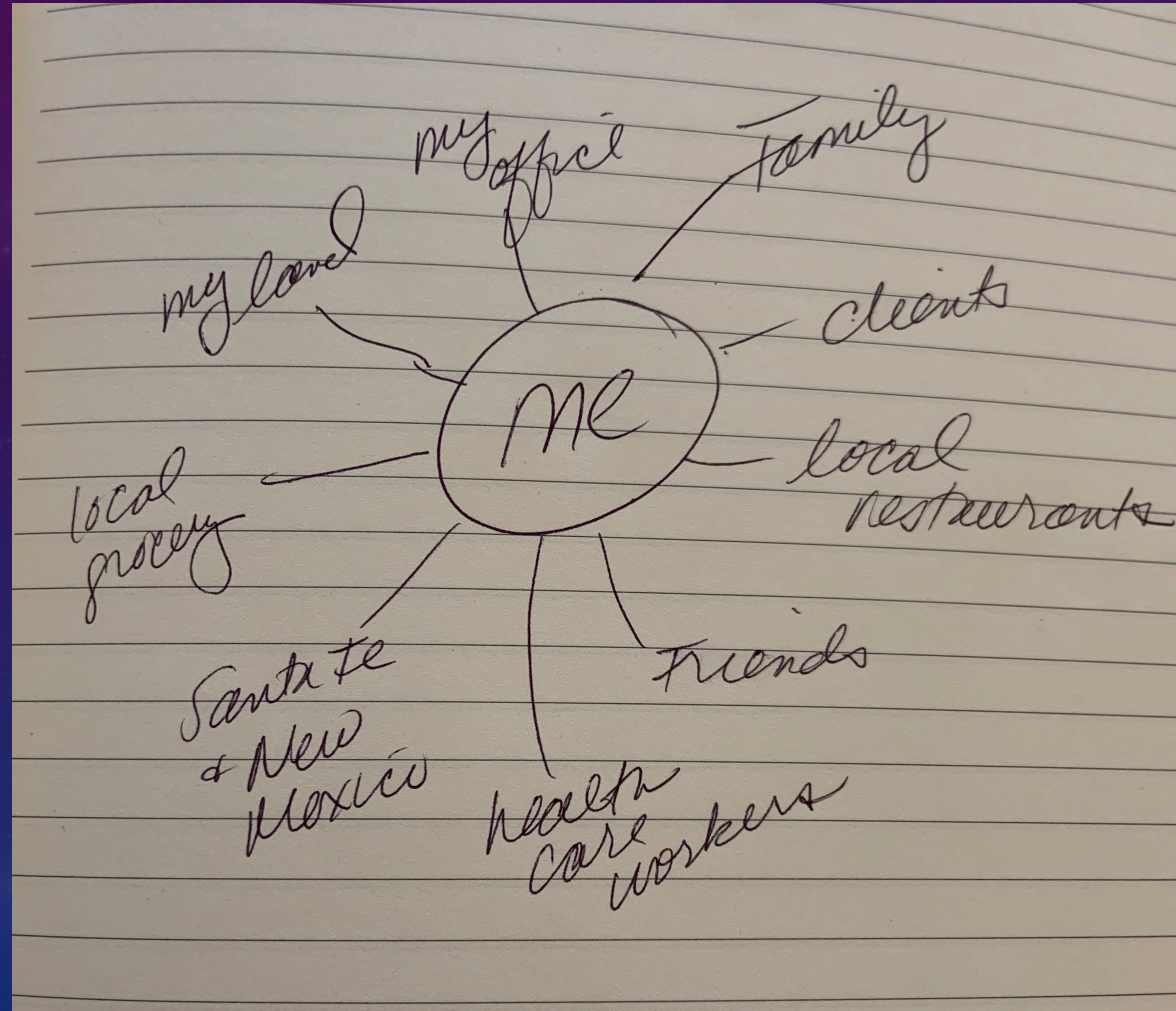 my
office
Family
clients
my
me
local
restaurants
local
grocery
Friends
Santa Fe
+ New
Mexico
health
care
workers